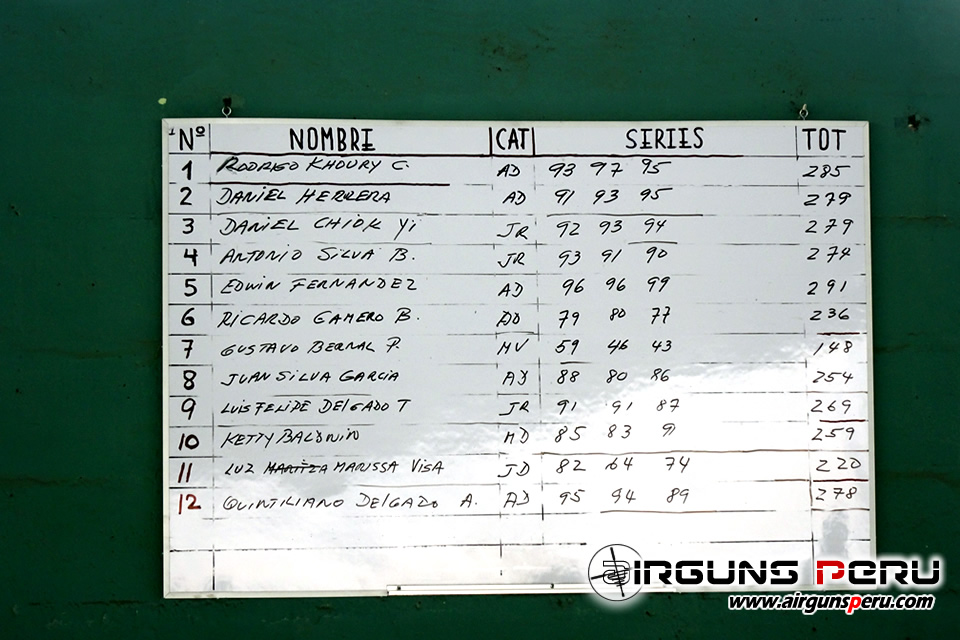 Nº NOMBRE CAT SERIES TOT
1 RODRIGO KHOURY C. AD 93 97 95 285
2 DANIEL HERRERA AD 91 93 95 279
3 DANIEL CHIOK Yi JR 92 93 94 279
4 ANTONIO SILVA B. JR 93 91 90 274
5 EDWIN FERNANDEZ AD 96 96 99 291
6 RICARDO GAMERO B. AD 79 80 77 236
7 GUSTAVO BERNAL P. MV 59 46 43 148
8 JUAN SILVA GARCIA AD 88 80 86 254
9 LUIS FELIPE DELGADO T JR 91 91 87 269
10 KETTY BALDNIN MD 85 83 91 259
11 LUZ MARITZA MARUSSA VISA JD 82 64 74 220
12 QUINTILIANO DELGADO A. AD 95 94 89 278
AIRGUNS PERU
www.airgunsperu.com